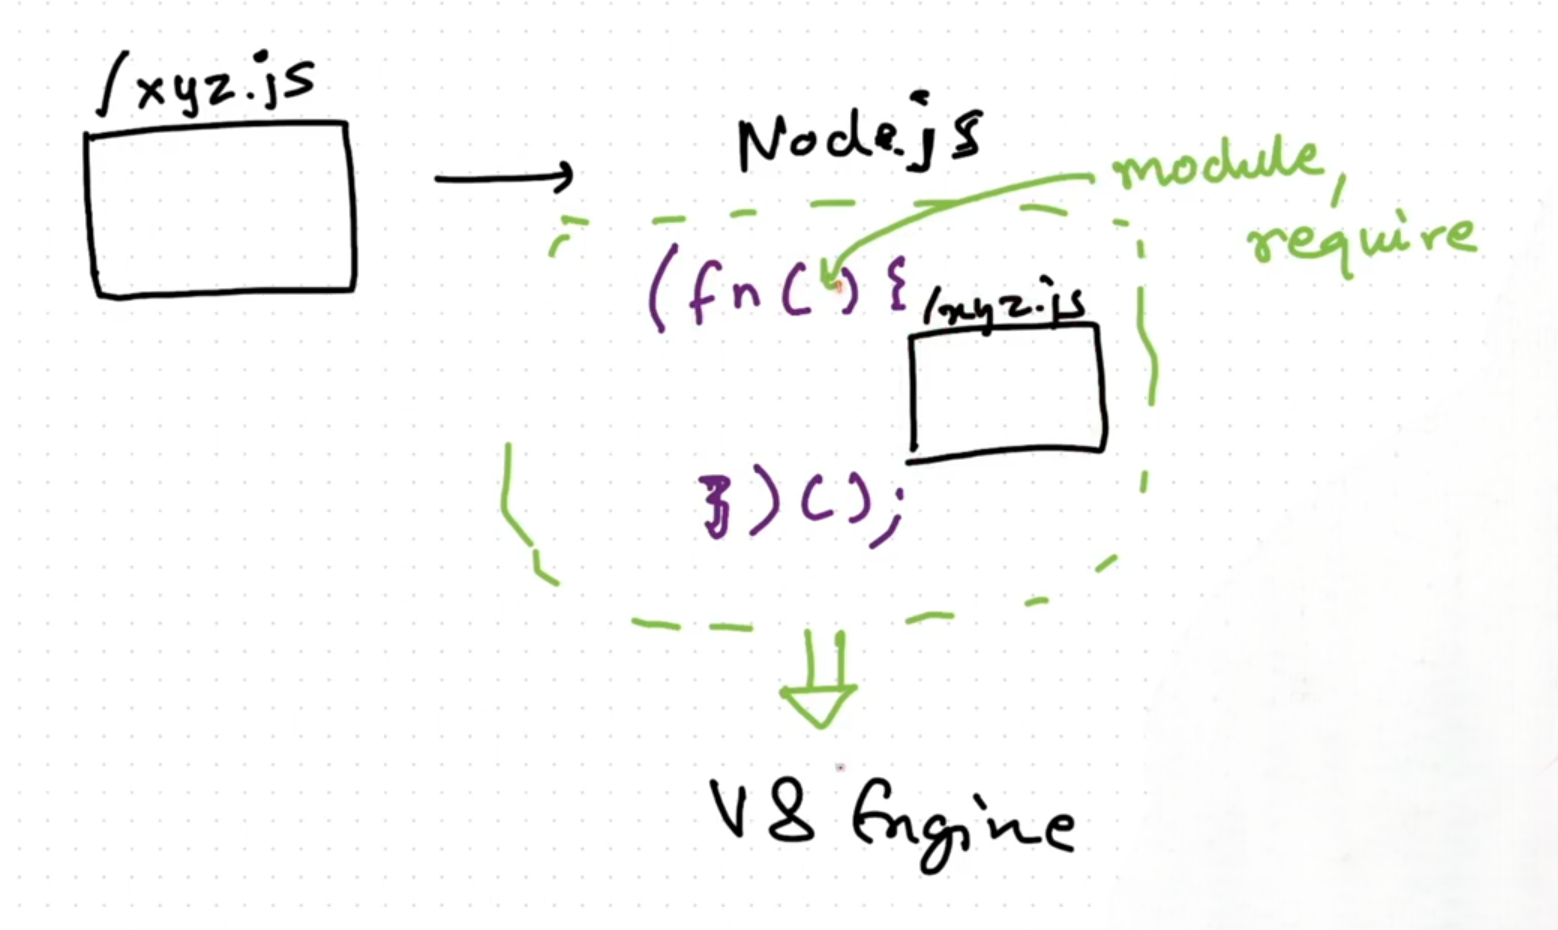 /xyz.js
Node.js
module,
require
(fn() {
/xyz.js
})();
V8 Engine